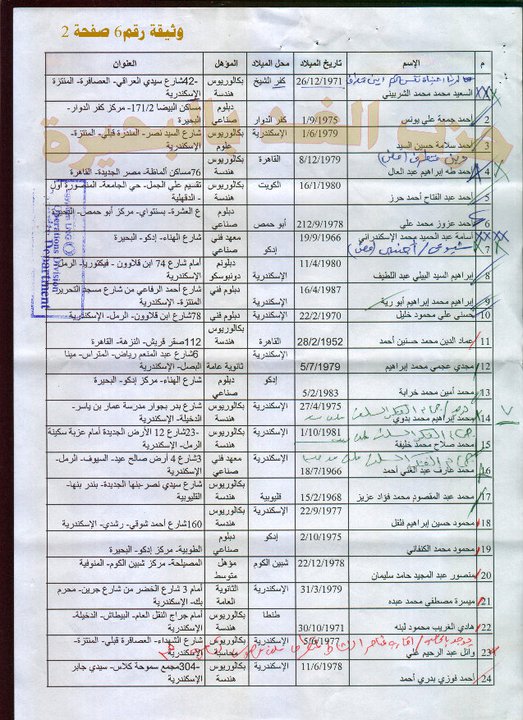 وثيقة رقم6 صفحة 2
م الإسم تاريخ الميلاد محل الميلاد المؤهل العنوان
1 السعيد محمد محمد الشربيني 26/12/1971 كفر الشيخ بكالوريوس هندسة 42-شارع سيدي العراقي- العصافرة- المنتزة الإسكندرية
2 أحمد جمعة علي يونس 1/9/1975 كفر الدوار دبلوم صناعي مساكن البيضا 171/2- مركز كفر الدوار- البحيرة
3 أحمد سلامة حسين السيد 1/6/1979 الإسكندرية بكالوريوس علوم شارع السيد نصر- المندرة قبلي- المنتزة- الإسكندرية
4 أحمد طه إبراهيم عبد العال 8/12/1979 القاهرة بكالوريوس هندسة 76مساكن ألماظة- مصر الجديدة- القاهرة
5 أحمد عبد الفتاح أحمد حرز 16/1/1980 الكويت بكالوريوس هندسة تقسيم علي الجمل- حي الجامعة- المنصورة أول - الدقهلية
6 أحمد عزوز محمد علي 212/9/1978 أبو حمص دبلوم صناعي ع العشرة- بسنتواي- مركز أبو حمص- البحيرة
7 أسامة عبد الحميد محمد الإسكندراني 19/9/1966 إدكو معهد فني صناعي شارع الهناء- إدكو- البحيرة
8 إبراهيم السيد البيلي عبد اللطيف 11/4/1980 الإسكندرية دبلوم دونبوسكو أمام شارع 74 ابن قلاوون - فيكتوريا- الرمل- الإسكندرية
9 إبراهيم محمد إبراهيم أبو رية 16/4/1987 الإسكندرية دبلوم فني شارع أحمد الرفاعي من شارع مسجد التحرير- المنتزة- الإسكندرية
10 حسني علي محمود خليل 22/2/1970 الإسكندرية دبلوم فني 78شارع ابن قلاوون- الرمل- الإسكندرية
11 عماد الدين محمد حسنين أحمد 28/2/1952 القاهرة بكالوريوس هندسة 112صقر قريش- النزهة- القاهرة
12 مجدي عجمي محمد إبراهيم 5/7/1979 الإسكندرية ثانوية عامة 6شارع عبد المنعم رياض- المتراس- مينا البصل- الإسكندرية
13 محمد أمين محمد خرابة 5/2/1983 إدكو دبلوم صناعي شارع الهناء- مركز إدكو- البحيرة
14 محمد إبراهيم محمد بدوي 27/4/1975 الإسكندرية بكالوريوس هندسة شارع بدر بجوار مدرسة عمار بن ياسر- الدخيلة- الإسكندرية
15 محمد صلاح محمد خليفة 1/10/1981 الإسكندرية بكالوريوس هندسة 23-شارع 12 الأرض الجديدة أمام عزبة سكينة الرمل- الإسكندرية
16 محمد عارف عبد الغني أحمد 18/7/1966 الإسكندرية معهد فني صناعي 3شارع 4 أرض صالح عيد- السيوف- الرمل- الإسكندرية
17 محمد عبد المقصود محمد فؤاد عزيز 15/2/1968 قليوبية بكالوريوس هندسة شارع سيدي نصر-بنها الجديدة- بندر بنها- القليوبية
18 محمود حسين إبراهيم فلفل 22/9/1977 الإسكندرية بكالوريوس هندسة 160شارع أحمد شوقي- رشدي- الإسكندرية
19 محمود محمد الكتفاتي 2/10/1975 إدكو دبلوم صناعي الطوبية- مركز إدكو- البحيرة
20 منصور عبد المجيد حامد سليمان 22/12/1978 شبين الكوم مؤهل متوسط المصيلحة- مركز شبين الكوم- المنوفية
21 ميسرة مصطفي محمد عبده 31/3/1979 الإسكندرية الثانوية العامة أمام 3 شارع الخضر من شارع جرين- محرم بك- الإسكندرية
22 هادي الغريب محمود لبنه 30/10/1971 طنطا بكالوريوس هندسة أمام جراج النقل العام- البيطاش- الدخيلة- الإسكندرية
23 وائل عبد الرحيم علي 5/6/1977 الإسكندرية بكالوريوس محاسبة شارع الشهداء- العصافرة قبلي- المنتزة- الإسكندرية
24 أحمد فوزي بدري أحمد 11/6/1978 الإسكندرية بكالوريوس هندسة 304-مجمع سموحة كلاس- سيدي جابر الإسكندرية